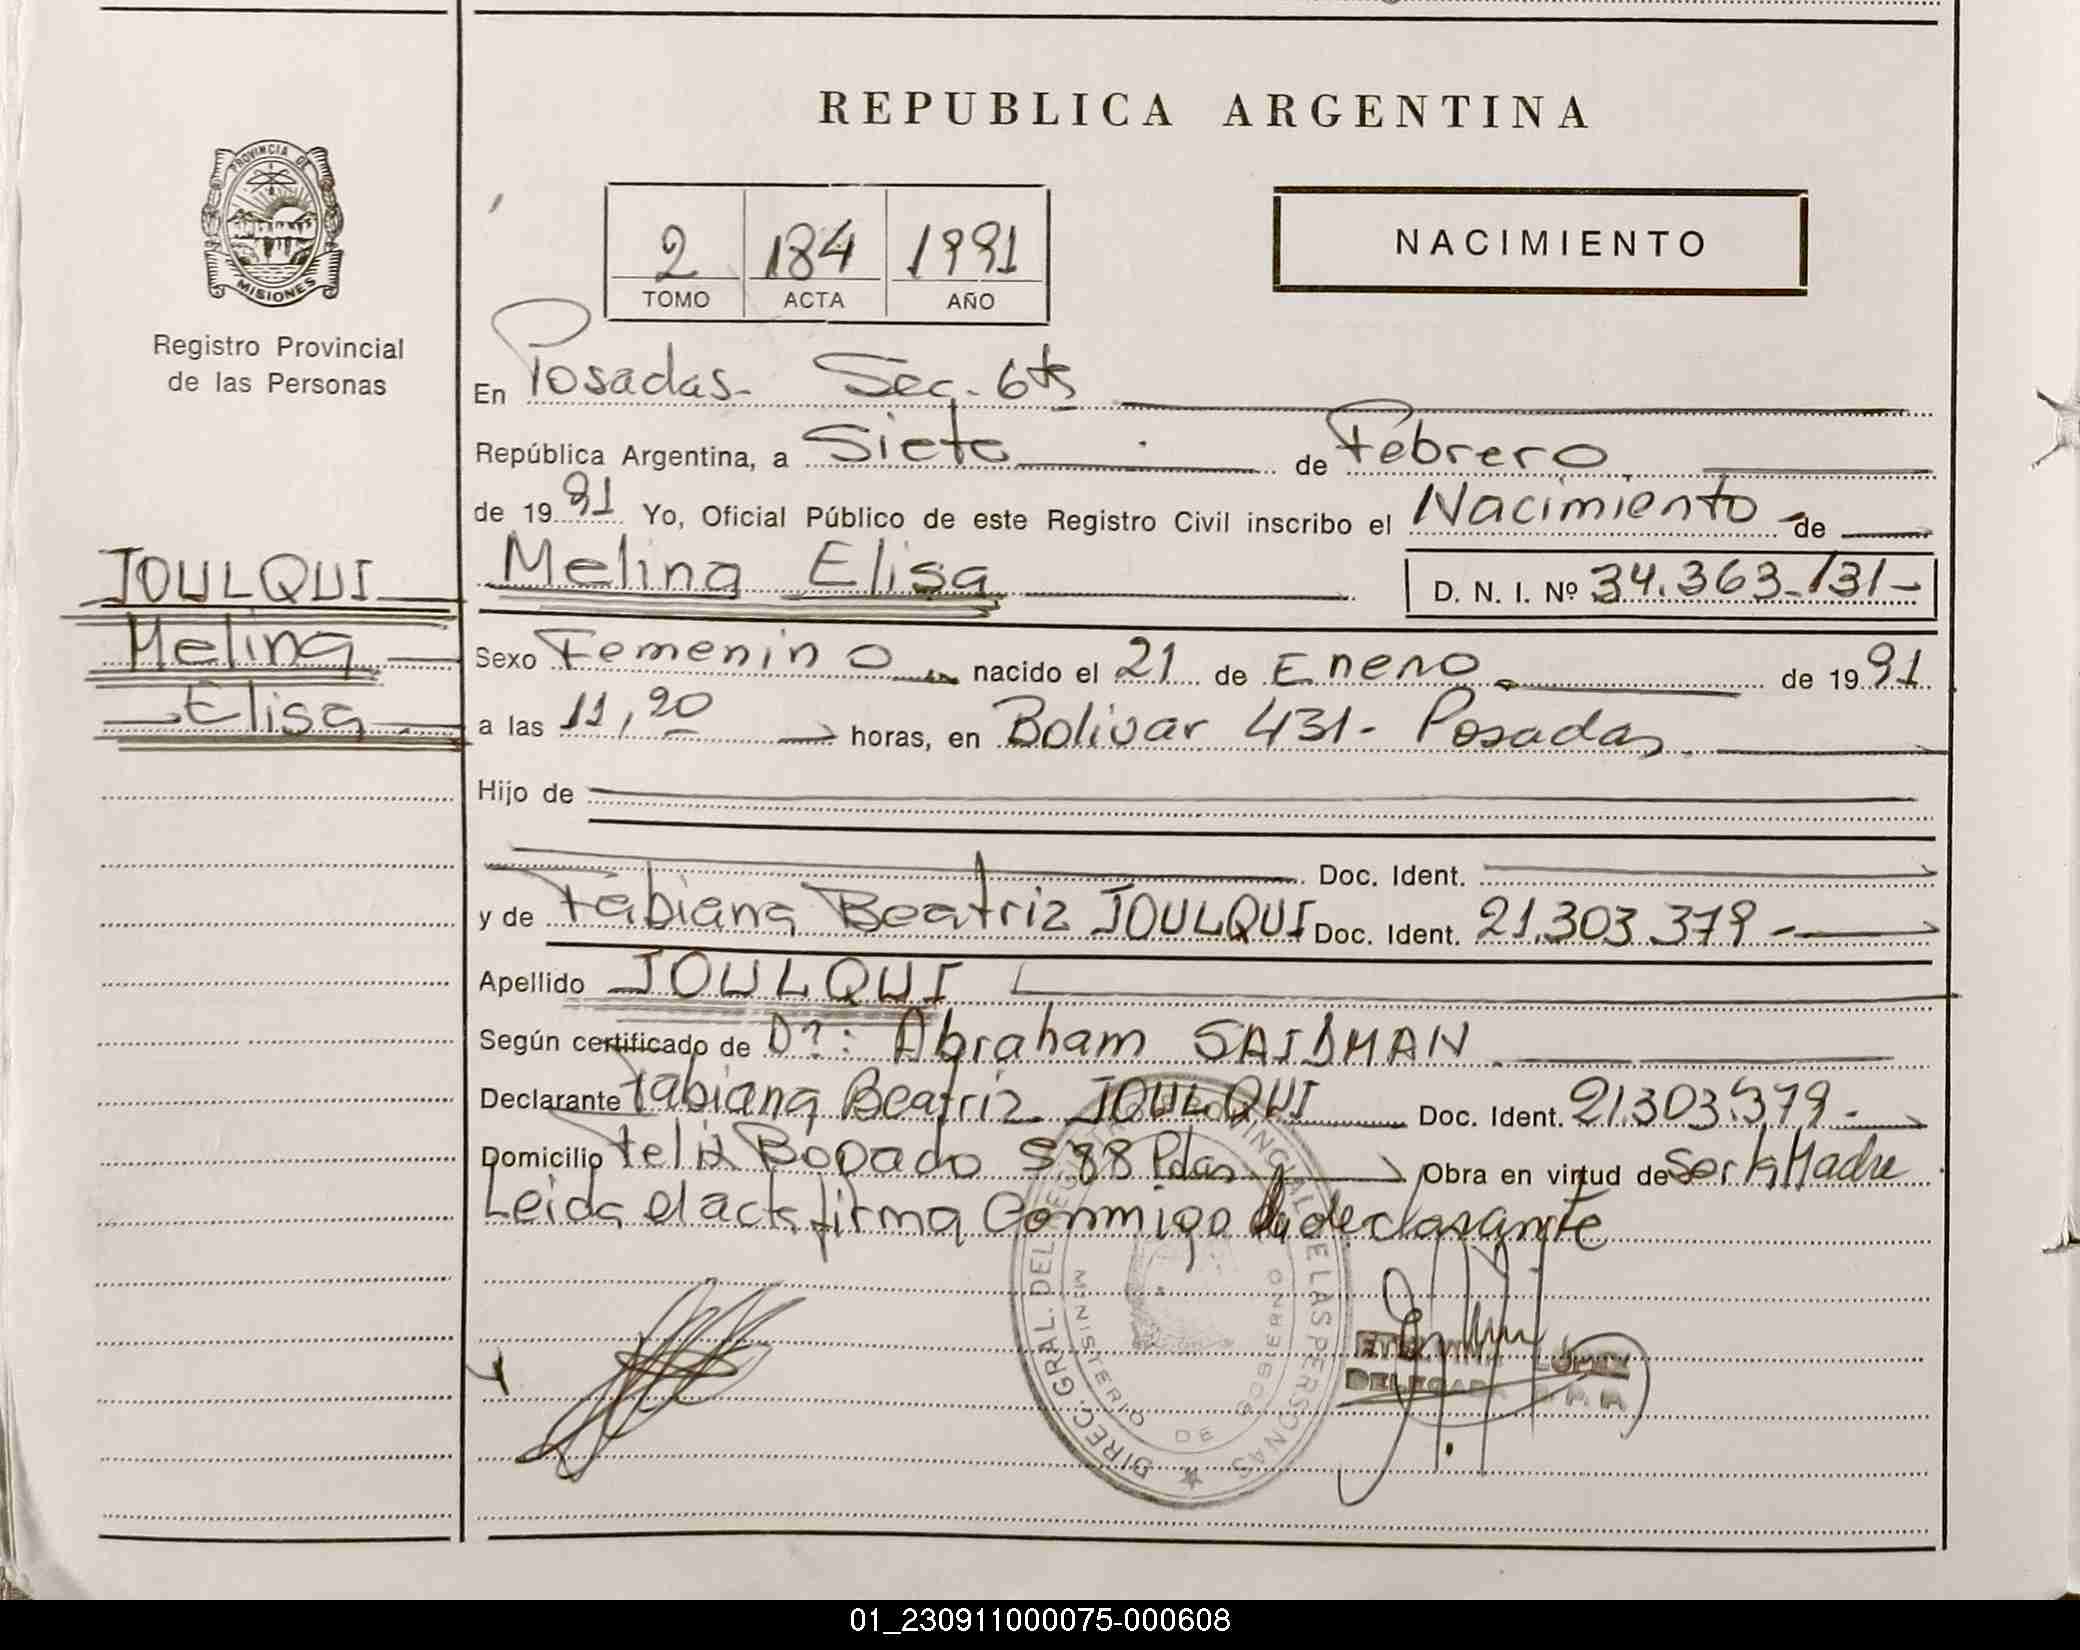 REPUBLICA ARGENTINA
PROVINCIA DE
MISIONES
Registro Provincial
de las Personas
2 184 1991
TOMO ACTA AÑO
NACIMIENTO
En Posadas- Sec. 6ta
República Argentina, a Siete de Febrero
de 1991 Yo, Oficial Público de este Registro Civil inscribo el Nacimiento de
JOULQUI
Melina
Elisa
Melina Elisa D. N. I. Nº 34.363.131-
Sexo Femenino nacido el 21 de Enero de 1991
a las 11,20 horas, en Bolivar 431- Posadas
Hijo de
Doc. Ident.
y de Fabiana Beatriz JOULQUI Doc. Ident. 21.303.379-
Apellido JOULQUI
Según certificado de Dr: Abraham SAIDMAN
Declarante Fabiana Beatriz JOULQUI Doc. Ident. 21.303.379-
Domicilio Felix Bogado S/88 Pdas Obra en virtud de Ser la Madre
Leida el acta firma Conmigo la declarante
DIREC. GRAL. DEL PROVINCIAL DE LAS PERSONAS
MINISTERIO DE GOBIERNO
LOPEZ
DELEGADA
01_230911000075-000608